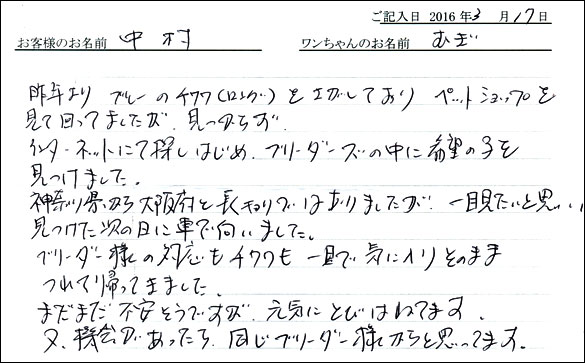 ご記入日 2016年3月17日
お客様のお名前 中村 ワンちゃんのお名前 むぎ
昨年より ブルーのチワワ(ロング)をさがしており ペットショップを
見て回ってましたが、見つからず、
インターネットにて探しはじめ、ブリーダーズの中に希望の子を
見つけました。
神奈川県から大阪府と長キョリではありましたが、一目見たいと思い
見つけた次の日に車で向いました。
ブリーダー様の対応もチワワも一目で気に入りそのまま
つれて帰ってきました。
まだまだ不安そうですが、元気にとびはねてます。
又、機会があったら、同じブリーダー様からと思ってます。